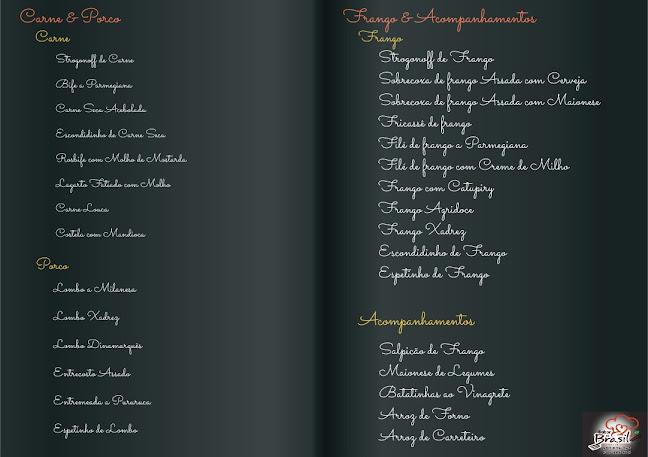 Carne & Porco
Carne
Strogonoff de Carne
Bife a Parmegiana
Carne Seca Acebolada
Escondidinho de Carne Seca
Rosbife com Molho de Mostarda
Lagarto Fatiado com Molho
Carne Louca
Costela com Mandioca
Porco
Lombo a Milanesa
Lombo Xadrez
Lombo Dinamarquês
Entrecosto Assado
Entremeada a Pururuca
Espetinho de Lombo
Frango & Acompanhamentos
Frango
Strogonoff de Frango
Sobrecoxa de frango Assada com Cerveja
Sobrecoxa de frango Assada com Maionese
Fricassé de frango
Filé de frango a Parmegiana
Filé de frango com Creme de Milho
Frango com Catupiry
Frango Agridoce
Frango Xadrez
Escondidinho de Frango
Espetinho de Frango
Acompanhamentos
Salpicão de Frango
Maionese de Legumes
Batatinhas ao Vinagrete
Arroz de Forno
Arroz de Carreteiro
Brasil